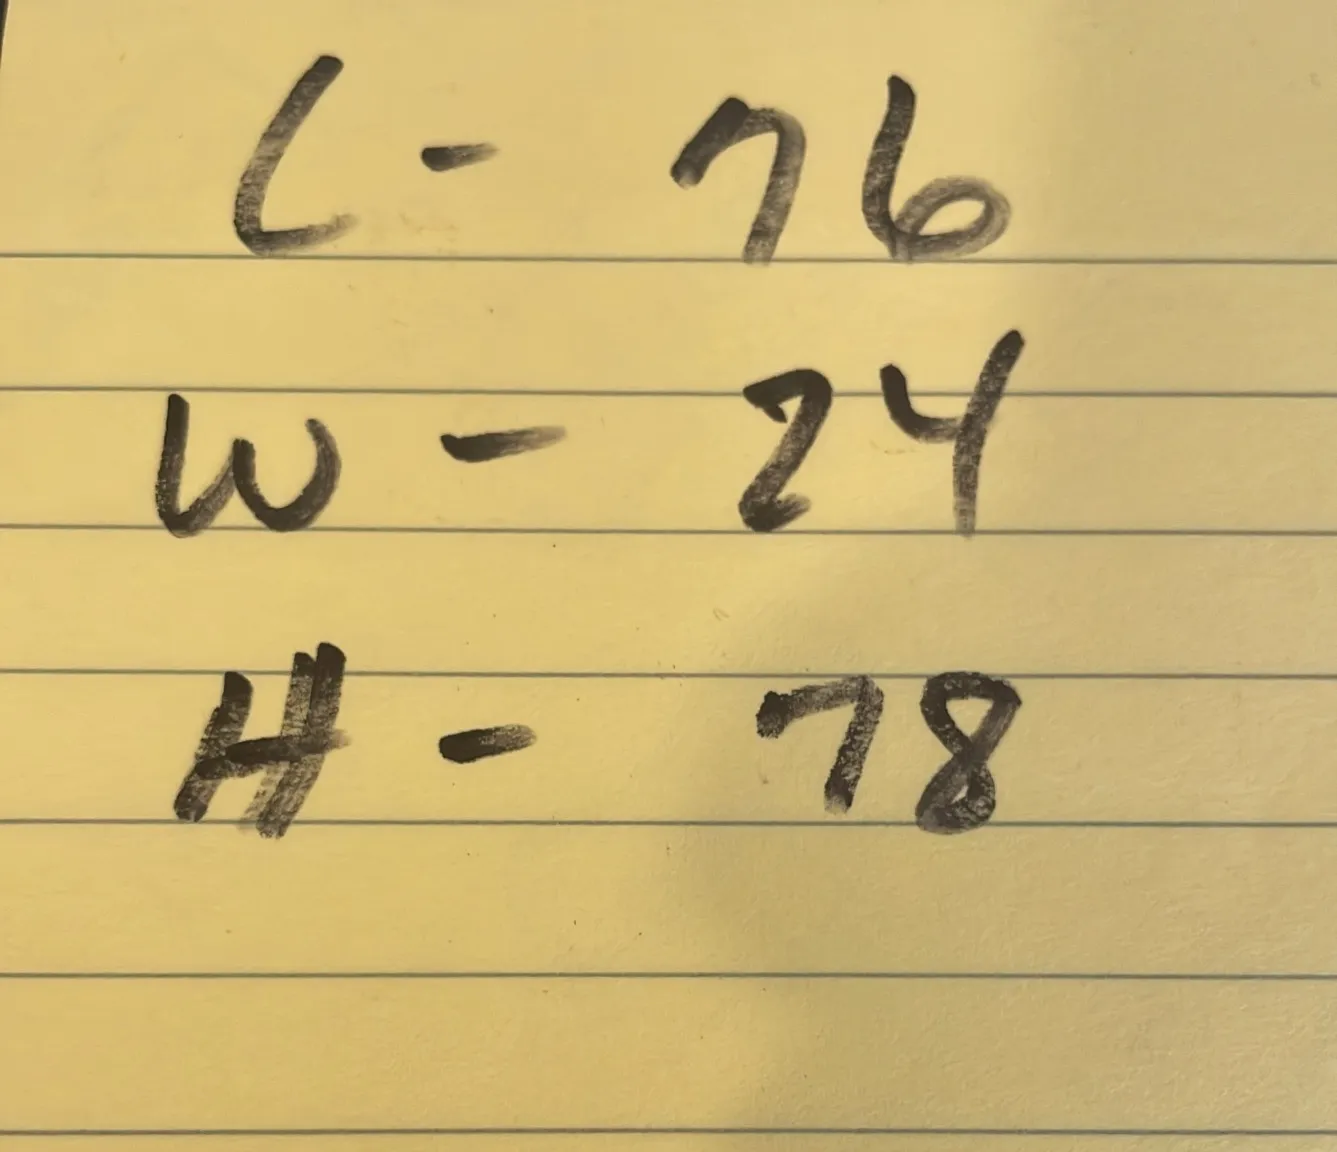 L - 76
W - 24
H - 78